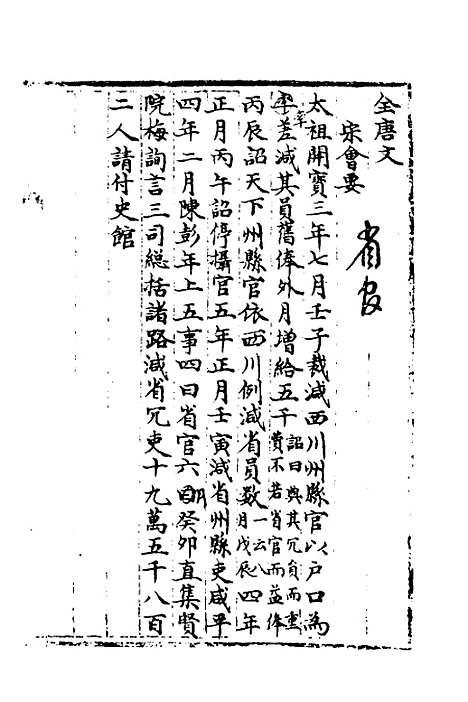 全唐文
宋會要
省官
太祖開寶三年七月壬子裁減西川州縣官以戶口為
率差減其員舊俸外月增給五千詔曰與其冗負而重費不若省官而益俸
丙辰詔天下州縣官依西川例減省員數一云八月戊辰四年
正月丙午詔停攝官五年正月壬寅減省州縣吏咸平
四年二月陳彭年上五事四曰省官六月癸卯直集賢
院梅詢言三司緫括諸路減省冗吏十九萬五千八百
二人請付史館